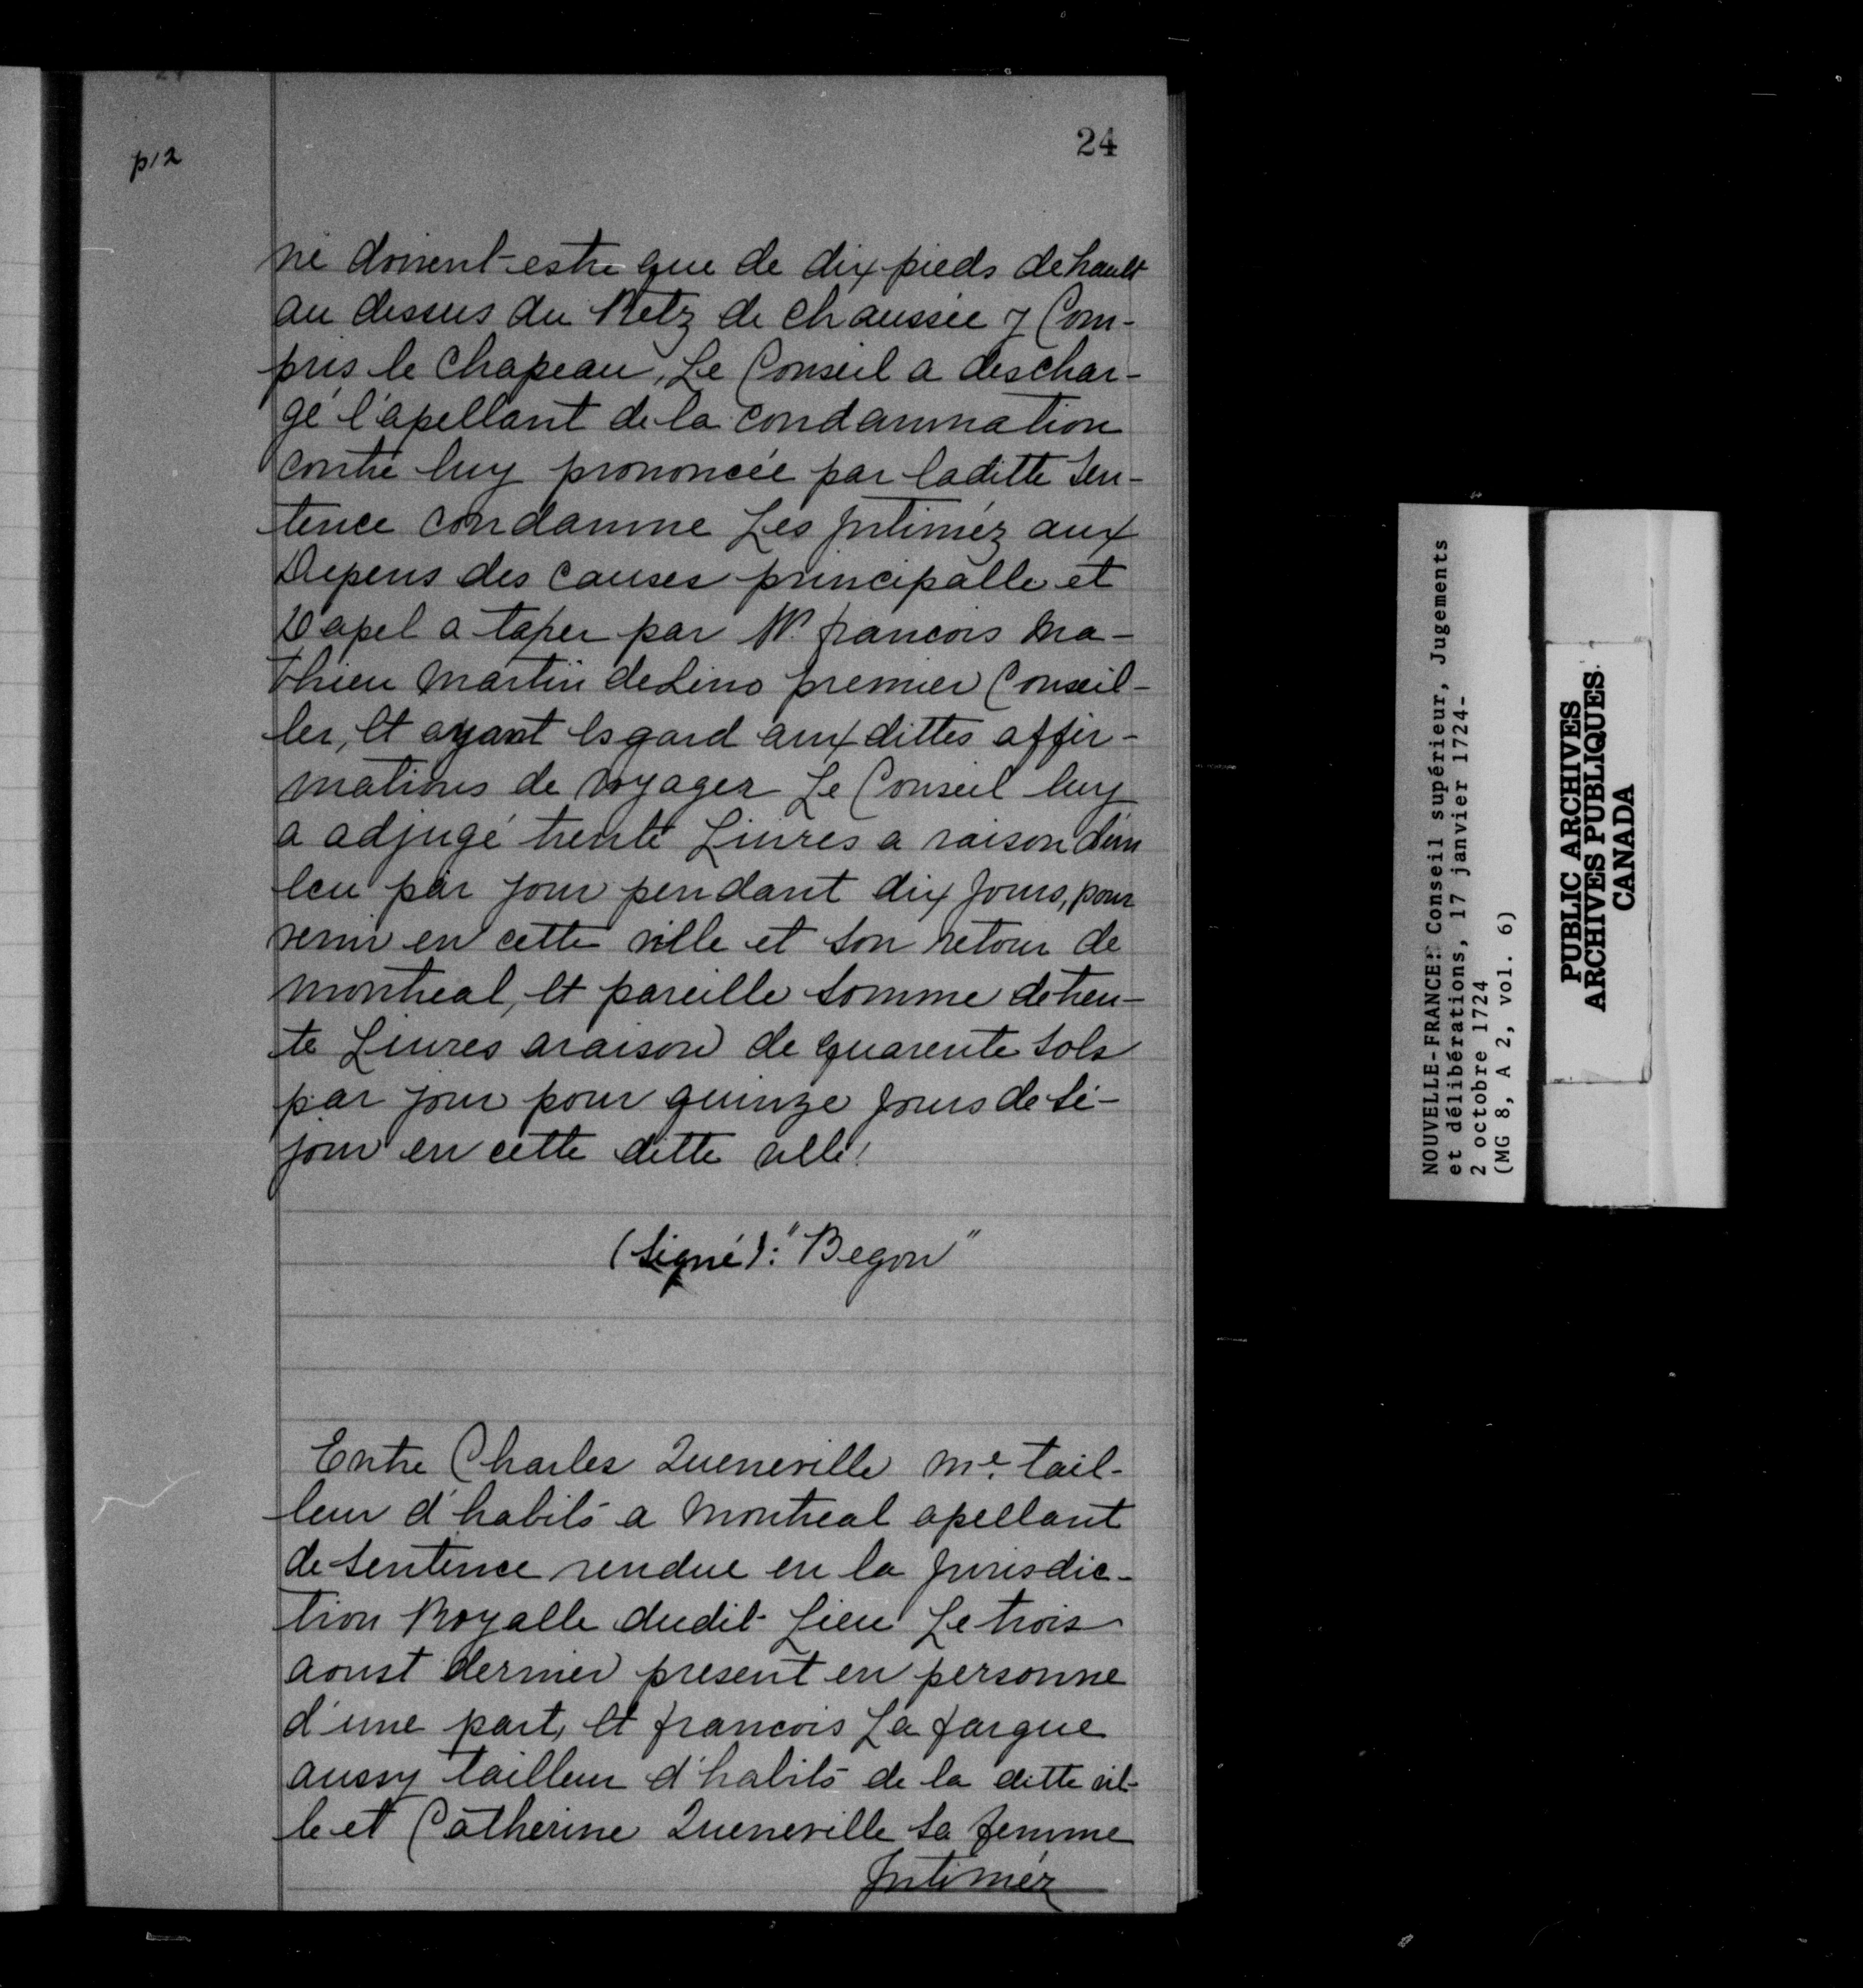 24
p12
ne doivent estre que de dix pieds de hault
au dessus du Retz de chaussée y Com-
pris le chapeau, Le Conseil a deschar-
gé l'apellant de la condamnation
contre luy prononcée par laditte sen-
tence condamne Les Jntiméz aux
Depens des causes principalle et
D'apel a taxer par Me. francois Ma-
thieu Martin deLino premier Conseil-
ler, Et ayant Esgard aux dittes affir-
mations de voyages Le Conseil luy
a adjugé trente Livres a raison d'un
Ecu par jour pendant dix Jours, pour
venir en cette ville et son retour de
Montreal, Et pareille somme de tren-
te Livres a raison de quarente sols
par jour pour quinze Jours de sé-
jour en cette ditte ville.
(Signé): "Begon"
Entre Charles Queneville Me. tail-
leur d'habits a Montreal apellant
de sentence rendue en la Jurisdic-
tion Royalle dudit Lieu Le trois
aoust dernier present en personne
d'une part, Et francois La fargue
aussy tailleur d'habits de la ditte vil-
le et Catherine Queneville sa femme
Jntiméz
NOUVELLE-FRANCE: Conseil supérieur, Jugements
et délibérations, 17 janvier 1724-
2 octobre 1724
(MG 8, A 2, vol. 6)
PUBLIC ARCHIVES
ARCHIVES PUBLIQUES
CANADA